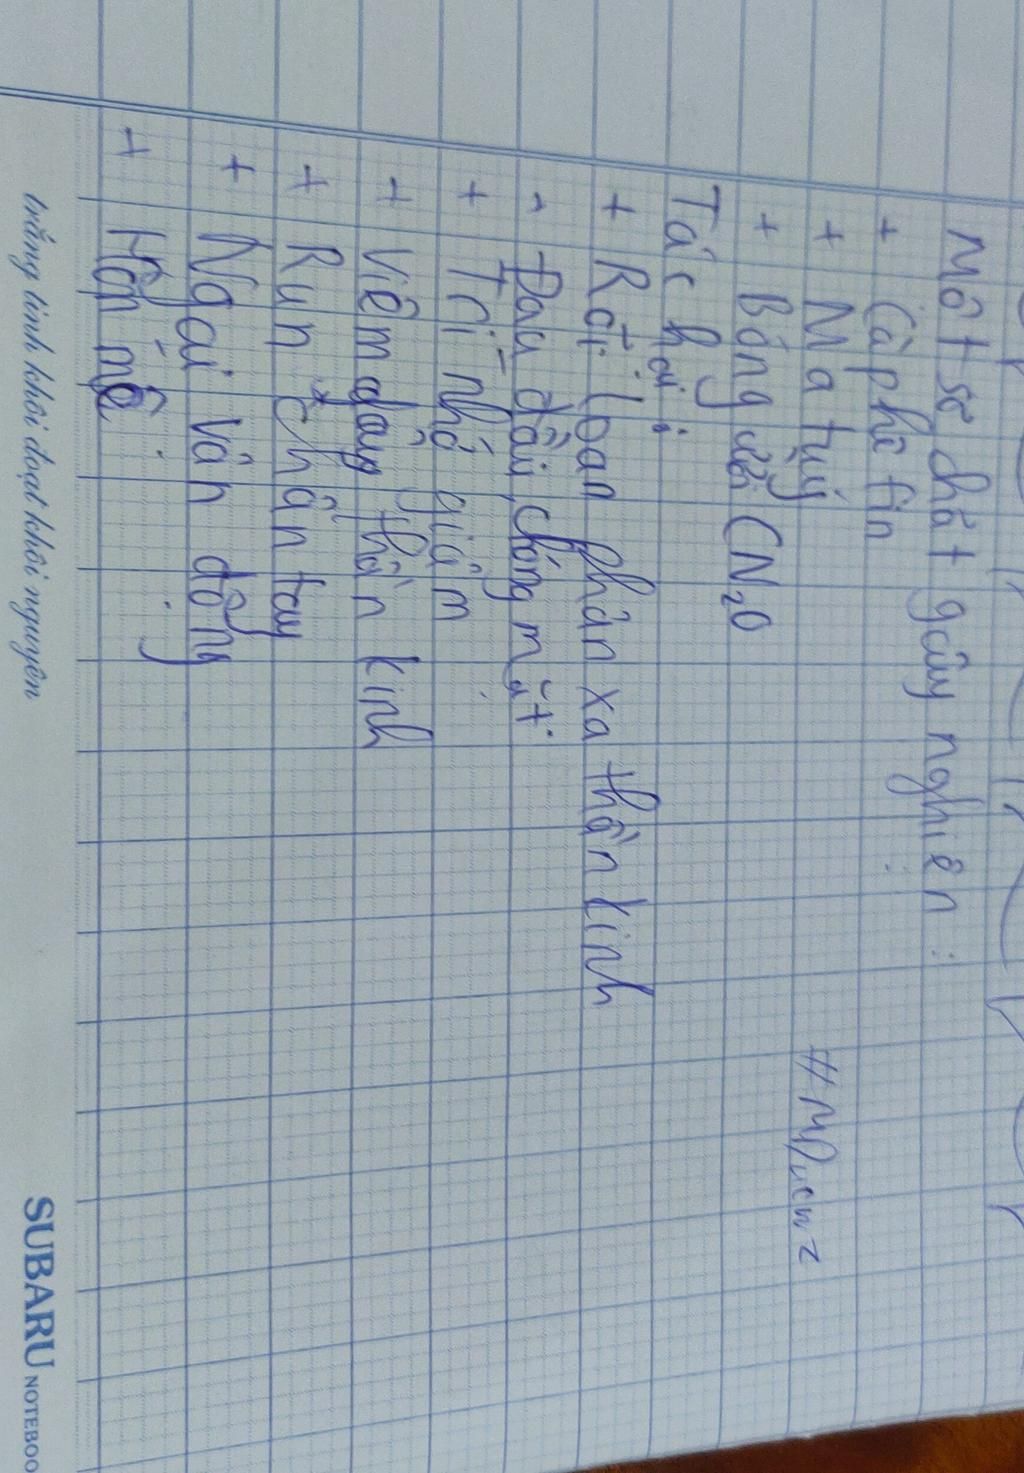 Một số chất gây nghiện:
+ Cà phê fin
+ Ma túy
+ Bóng cười CN₂O
Tác hại:
+ Rối loạn phản xạ thần kinh
- Đau đầu, chóng mặt.
+ Trí nhớ giảm
+ Viêm dây thần kinh
+ Run chân tay
+ Ngại vận động
+ Hôn mê.
trắng tinh khôi đoạt khôi nguyên
SUBARU NOTEBOO